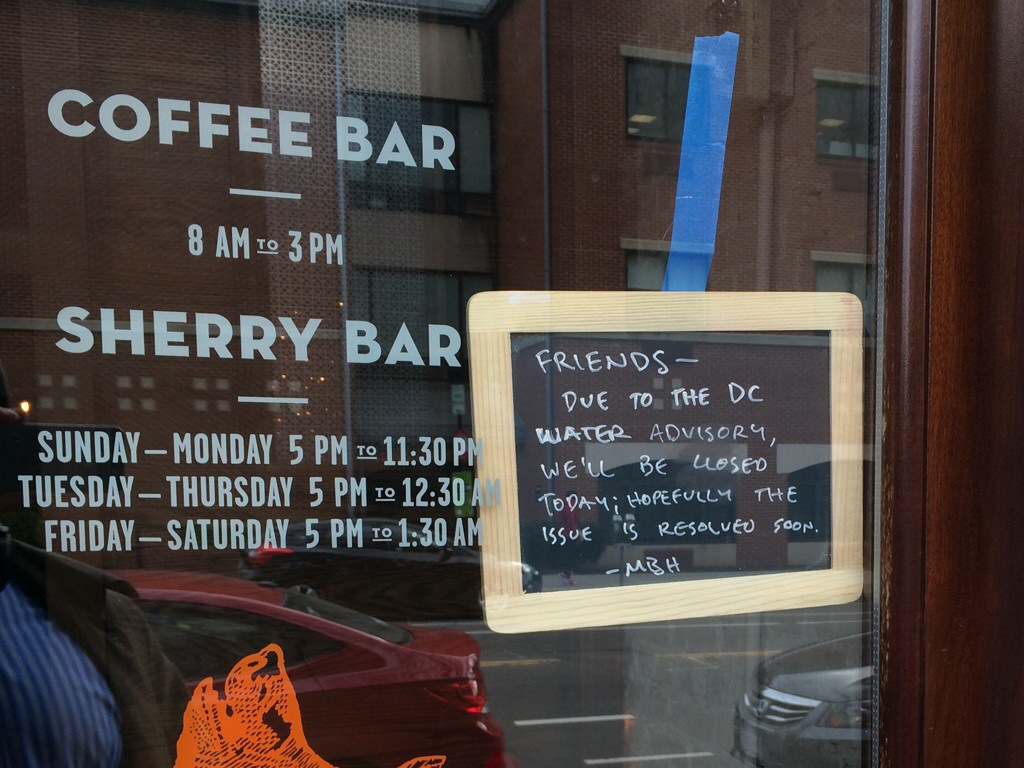 COFFEE BAR
8 AM TO 3 PM
SHERRY BAR
SUNDAY — MONDAY 5 PM TO 11:30 PM
TUESDAY — THURSDAY 5 PM TO 12:30 AM
FRIDAY — SATURDAY 5 PM TO 1:30 AM
FRIENDS —
DUE TO THE DC
WATER ADVISORY,
WE'LL BE CLOSED
TODAY; HOPEFULLY THE
ISSUE IS RESOLVED SOON.
- MBH